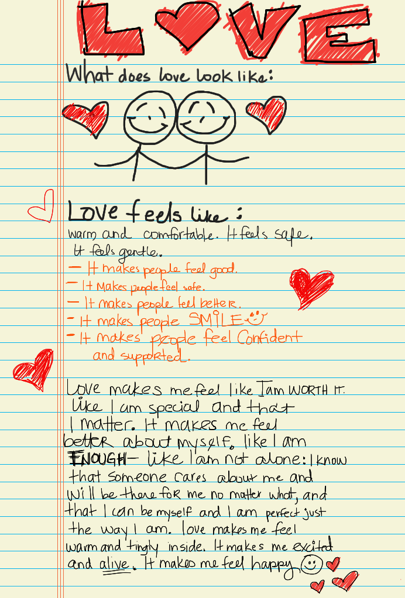 LOVE
What does love look like:
Love feels like:
warm and comfortable. It feels safe.
It feels gentle.
- It makes people feel good.
- It makes people feel safe.
- It makes people feel better.
- It makes people SMILE
- It makes people feel Confident
and supported.
Love makes me feel like I am WORTH IT.
like I am special and that
I matter. It makes me feel
better about myself. like I am
ENOUGH- like I am not alone: I know
that someone cares about me and
will be there for me no matter what, and
that I can be myself and I am perfect just
the way I am. love makes me feel
warm and tingly inside. It makes me excited
and alive. It makes me feel happy